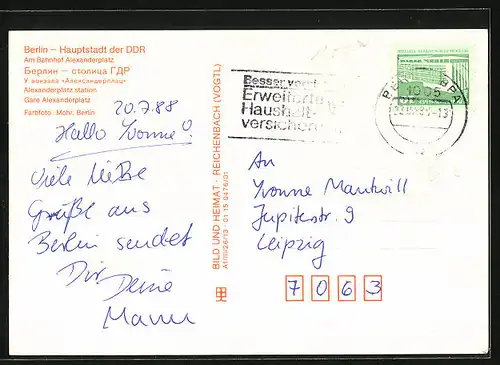 Berlin – Hauptstadt der DDR
Am Bahnhof Alexanderplatz
Берлин – столица ГДР
У вокзала «Александерплац»
Alexanderplatz station
Gare Alexanderplatz
Farbfoto: Mohr, Berlin
20.7.88
Hallo Yvonne!
Viele liebe
Grüße aus
Berlin sendet
Dir Deine
BILD UND HEIMAT · REICHENBACH (VOGTL)
A1/III/26/13 · 01 15 0476/01
Besser
Erweiterte
Haushalt-
versicher
1085
An
Yvonne Mantwill
Jupiterstr. 9
Leipzig
7063